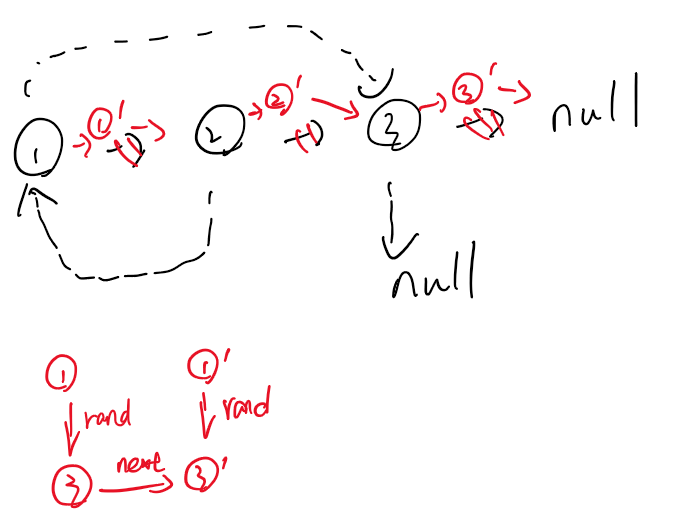 1 1' 2 2' 3 3' null
null
1 1'
rand rand
next
3 3'